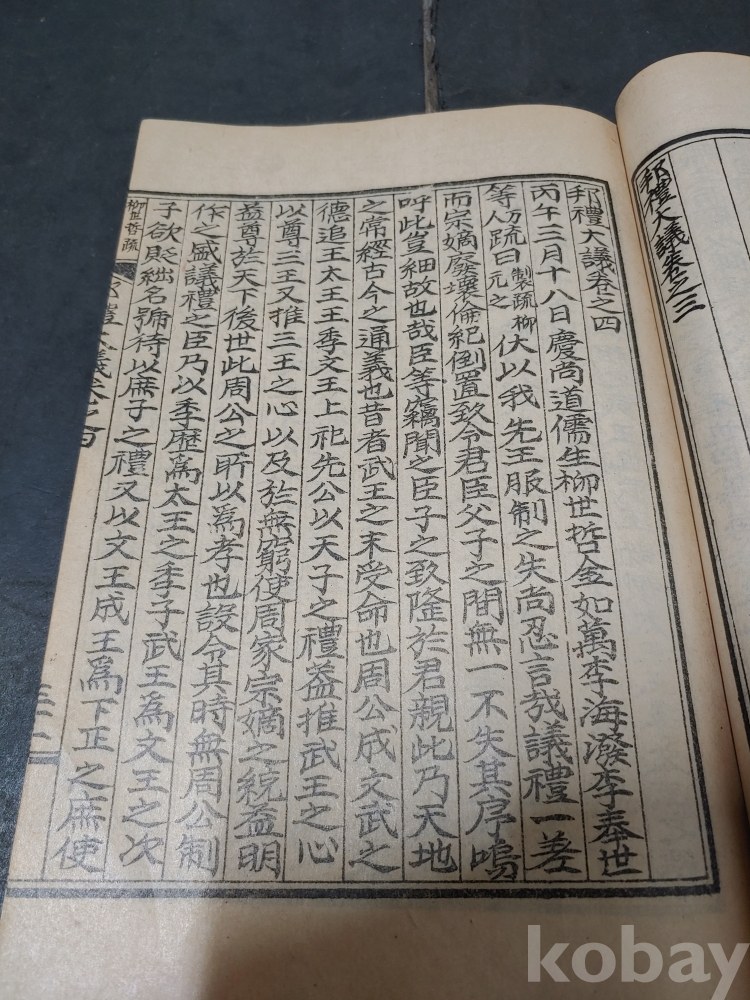 邦禮大議卷之三
邦禮大議卷之四
丙午三月十八日慶尚道儒生柳世哲金如萬李海潑李奉世
等疏曰製疏柳元之伏以我先王服制之失尚忍言哉議禮一差
而宗嫡廢壞倫紀倒置致令君臣父子之間無一不失其序嗚
呼此豈細故也哉臣等竊聞之臣子之致隆於君親此乃天地
之常經古今之通義也昔者武王之末受命也周公成文武之
德追王太王王季文王上祀先公以天子之禮盖推武王之心
以尊三王又推三王之心以及於無窮使周家宗嫡之統益明
益尊於天下後世此周公之所以為孝也設令其時無周公制
作之盛議禮之臣乃以季歷為太王之季子武王為文王之次
子欲貶絀名號待以庶子之禮又以文王成王為下正之庶使
柳世哲疏
kobay